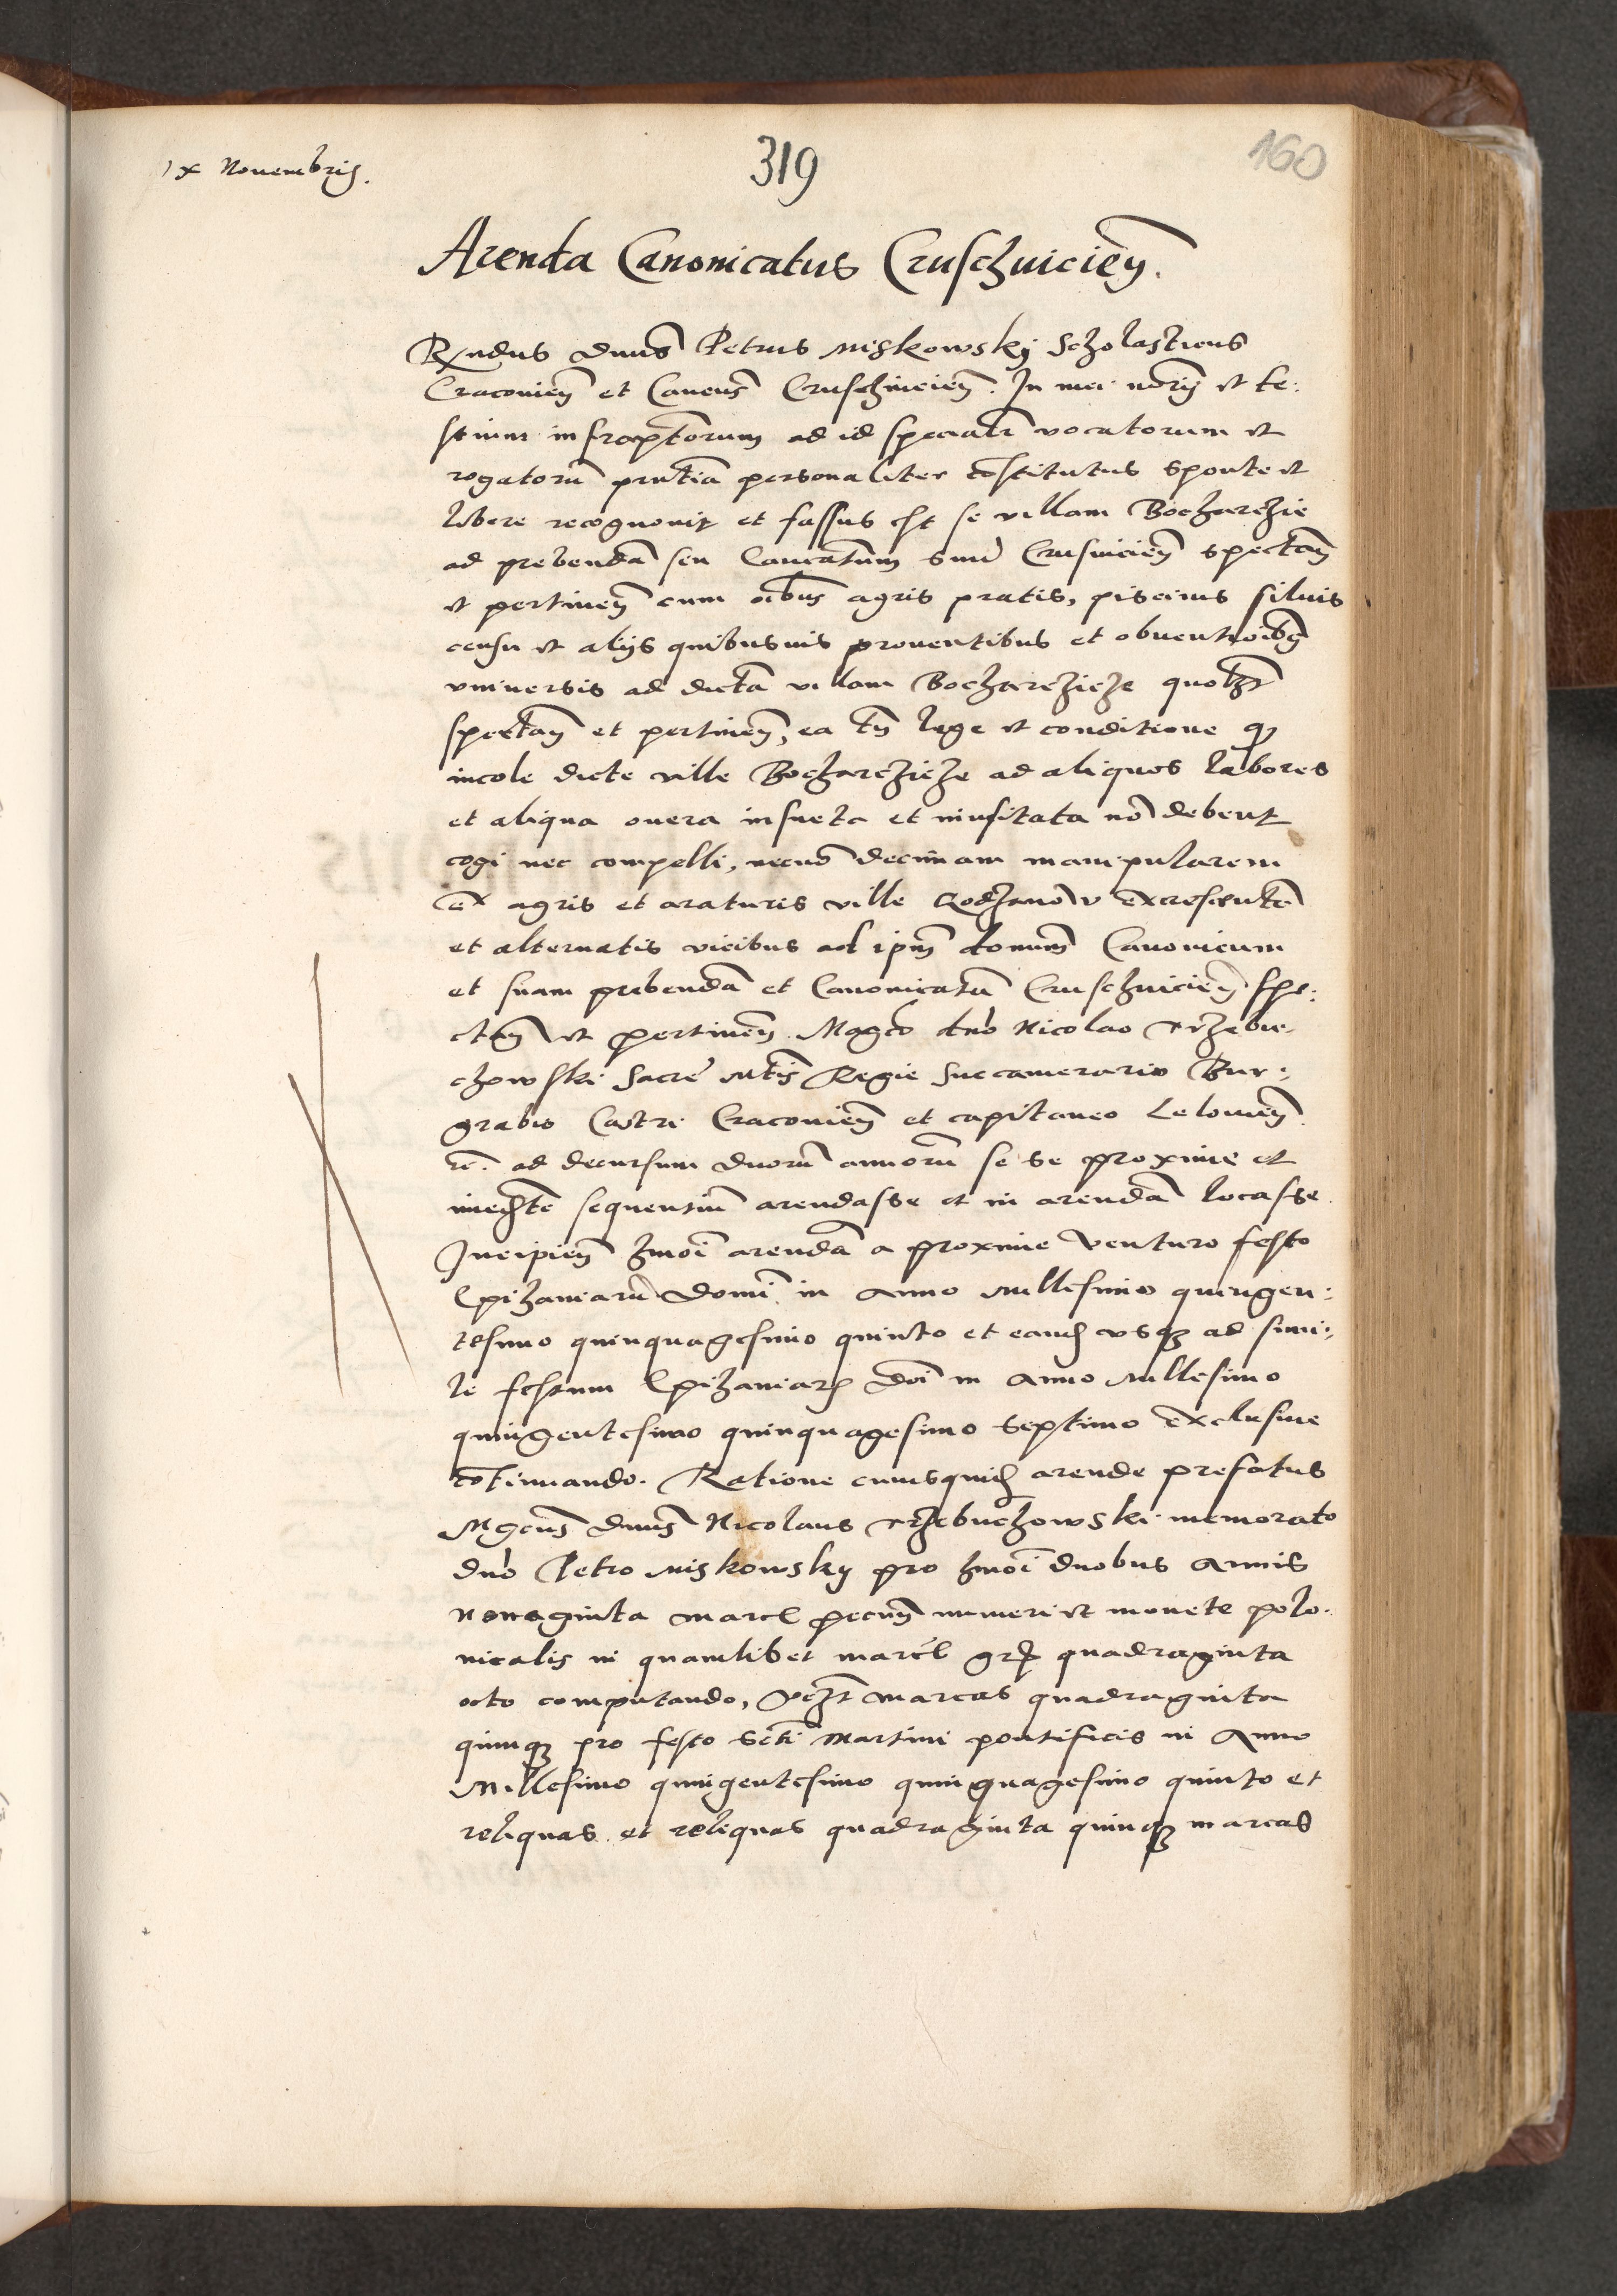 ix Nouembris.
319
160
Arenda Canonicatus Cruschuicien̄.
Rn̄dus dnus Petrus Miskowskӱ Scholasticus
Cracovien̄ et Canous Cruschuicien̄. In mei norӱ et te:
stium infrascptorum ad id specialr vocatorum et
rogatorū pntia personaliter cōstitutus sponte et
libere recognouit et fassus est se villam
ad prebendā seu Cancatum suū Crusuicien̄ spectan̄
et pertinen̄ cum oībus agris pratis, piscinis siluis
censu et alӱs quibusuis prouentibus et obuentioībꝫ
vniuersis ad dictā villam Bocharczicze quolꝫt
spectan̄ et pertinen̄, ea tn̄ lege et conditione ꝙ
incole dicte ville Bocharczicze ad aliquos labores
et aliqua onera insueta et inusitata nō debent
cogi nec compelli, necnō decimam manipularem
ex agris et araturis ville excrescentē
et alternatis vicibus ad ipm̄ donum̄ Canonicum
et suam prebendā et Canonicatū Cruschuicien̄ spe:
ctan̄ et pertinen̄ Magco dno Nicolao Trzebu
chowski Sacre Mtis Regie Succamerario Bur:
grabio Castri Cracovien̄ et capitaneo Lelouien̄
ad decursum duorū annorū se se proxime et
imediate sequentiū arendasse et in arendā locasse.
Incipien̄ hmōi arendā a proxime venturo festo
Epiphaniarū Domī in Anno Millesimo quingen:
tesimo quinquagesimo quinto et eand usqꝫ ad simi:
le festum Epiphaniarꝫ Doī in Anno Millesimo
quingentesimo quinquagesimo septimo exclusiue
cōtinuando. Ratione cuiusquid arende prefatus
Mgcus dnus Nicolaus Trzebuchowski memorato
dno Petro Miskowsky pro hmōi duobus Annis
nonaginta marc pecun̄ numeri et monete polo.
nicalis in quamlibet marc gr quadraginta
octo computando, vꝫt marcas quadraginta
quinqꝫ pro festo Scti Martini pontificis in Anno
Millesimo quingentesimo quinquagesimo quinto et
reliquas et reliquas quadraginta quinqꝫ marcas